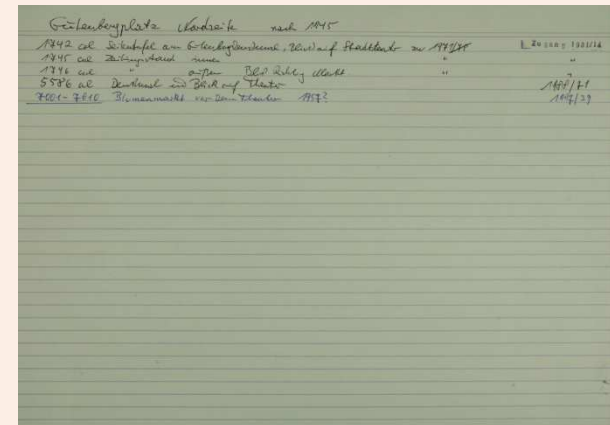 Gutenbergplatz Nordseite nach 1945
1742 col Seitentafel am Gutenbergdenkmal, Blick auf Stadttheater zu 1 Zugang 1981/26
1745 col Zeitungsstand innen " "
1746 col " außen Blick Richtg Markt " "
5576 col Denkmal und Blick auf Theater 1988/71
7001-7010 Blumenmarkt vor dem Theater 1957? 1997/29